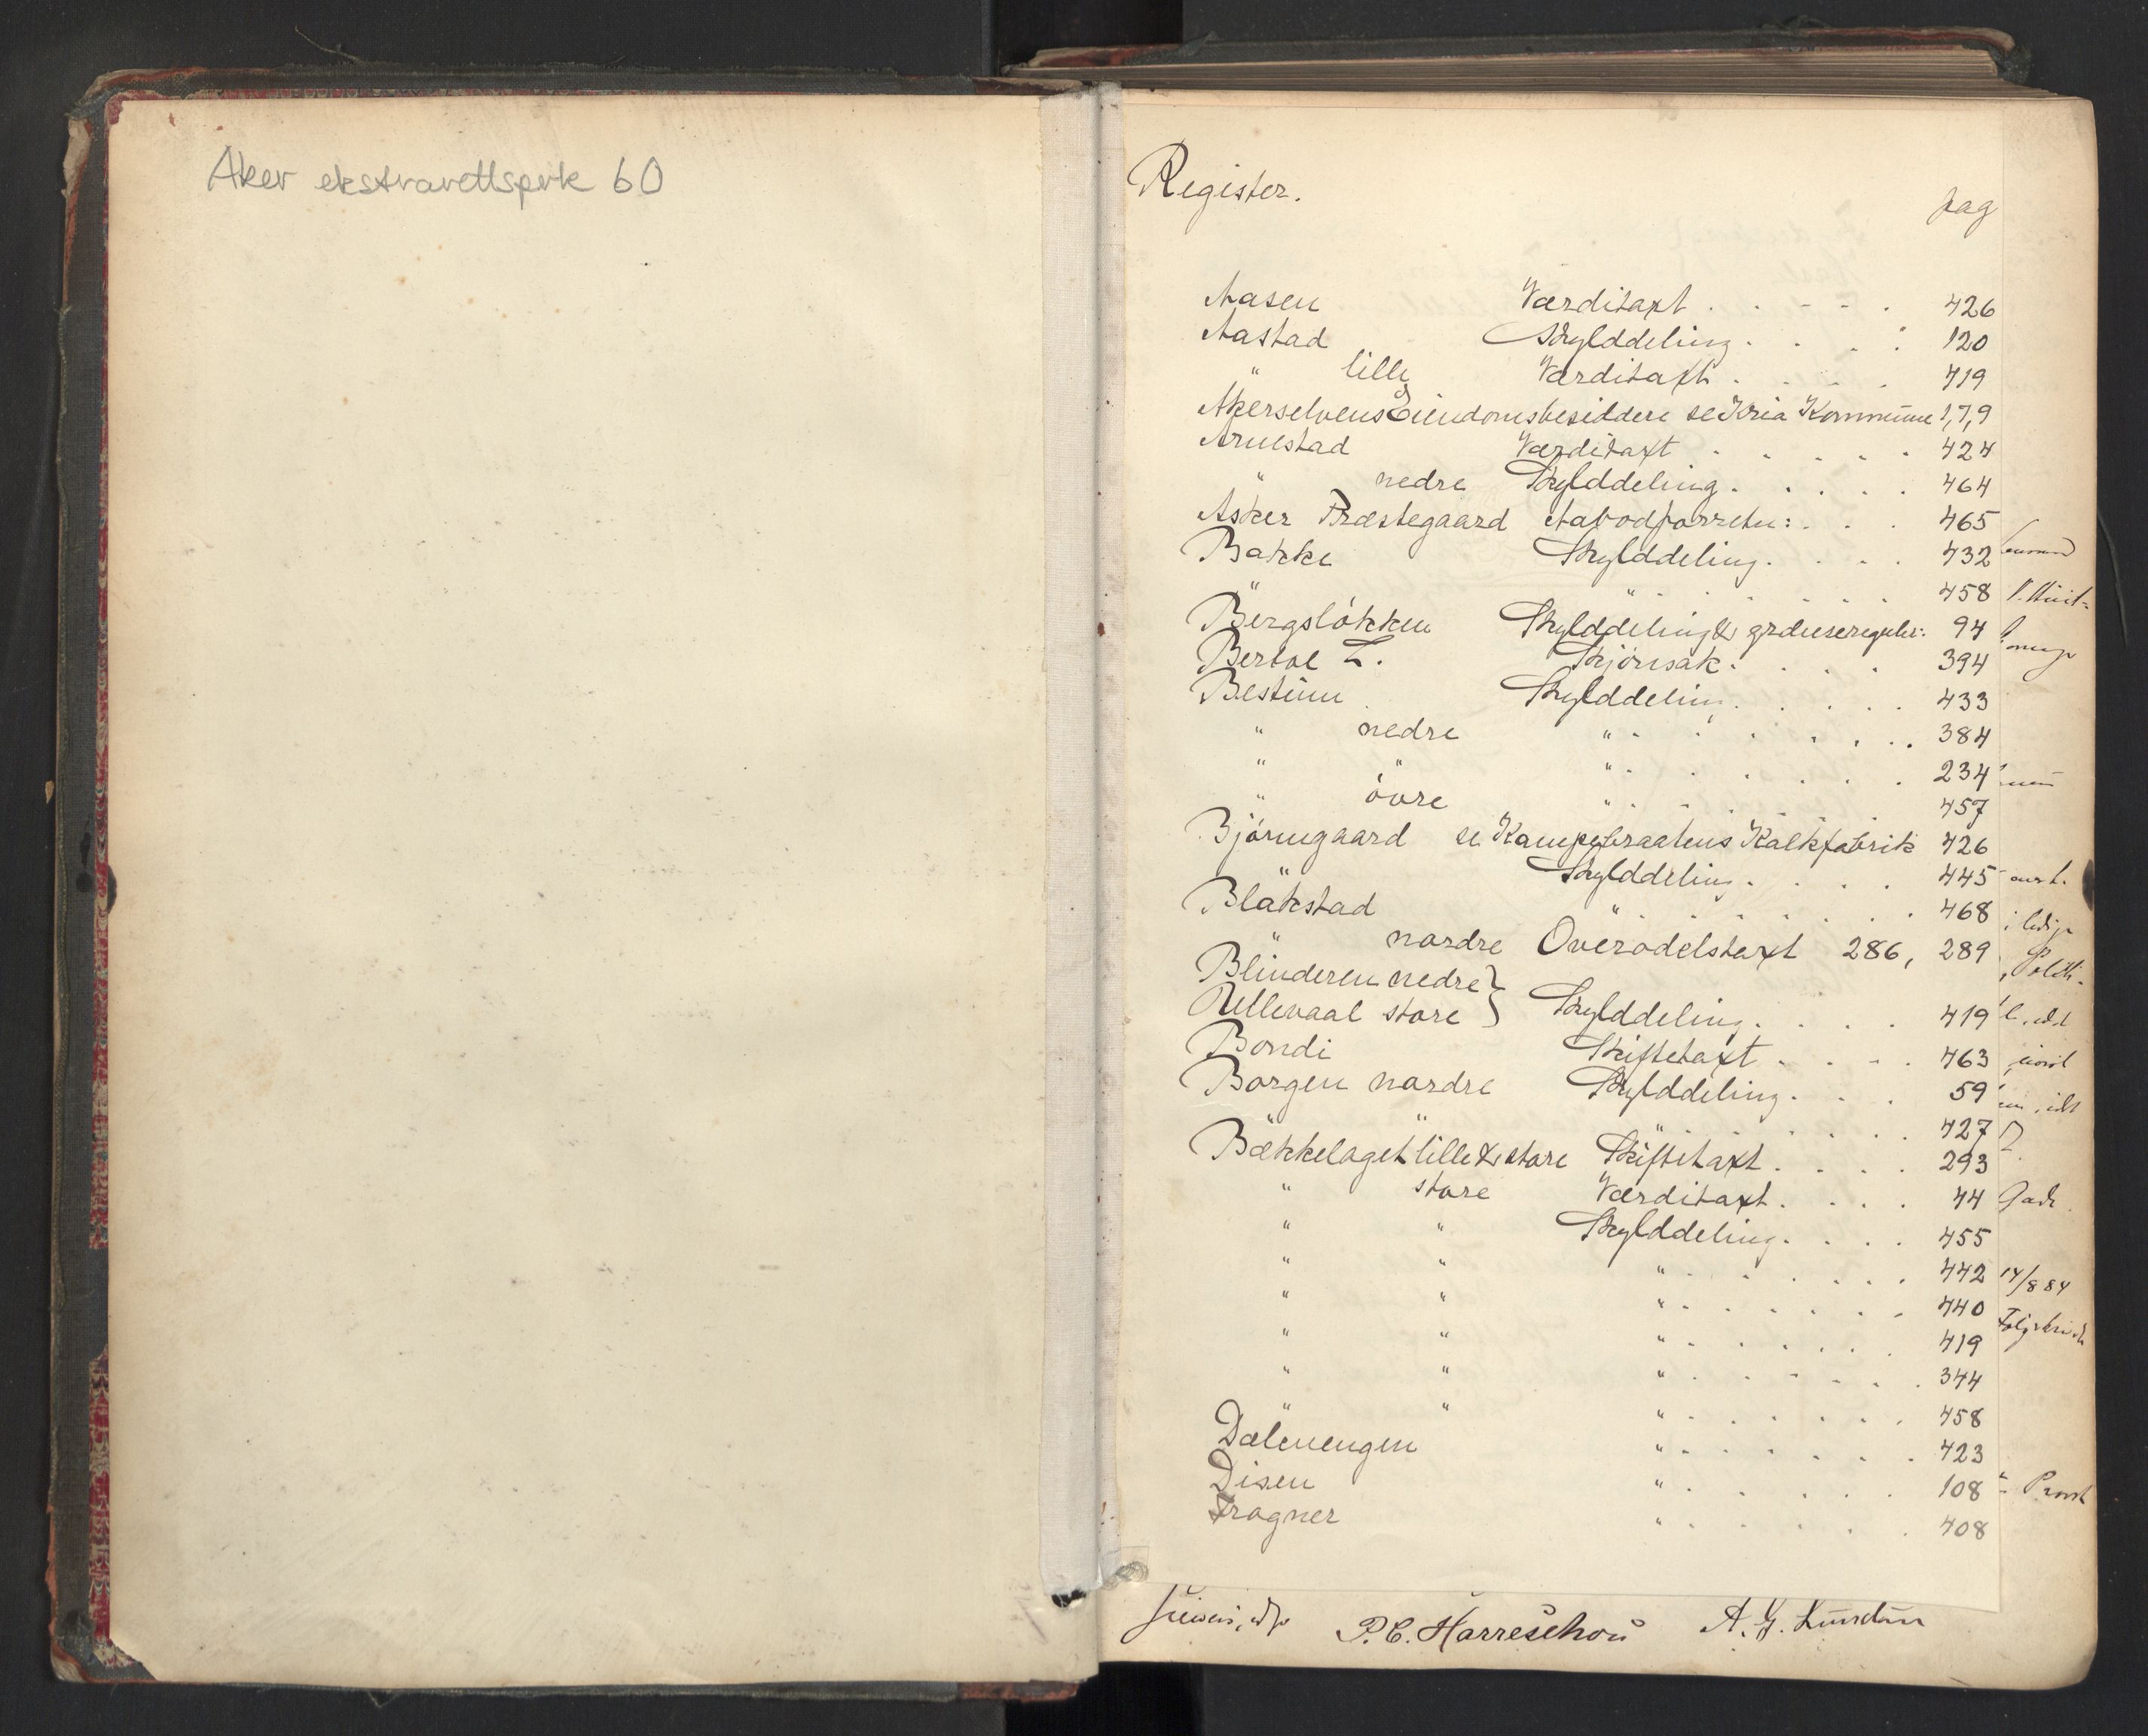 Aker ekstrarettsprk 60
Register.
pag
Aasen Værditaxt 426
Aastad Skylddeling 120
" lille Værditaxt 419
Akerselvens Eiendomsbesiddere se Kria Kommune 1,7,9
Arnestad Værditaxt 424
" nedre Skylddeling 464
Asker Præstegaard Aabodforretn: 465
Bakke Skylddeling 432
" " 458
Bergsløkken Skylddeling & grænsereguler: 94
Bertol L. Skjønsak 394
Bestum Skylddeling 433
" nedre " 384
" " " 234
" övre " 457
Bjørngaard se Kampebraatens Kalkfabrik 426
" Skylddeling 445
Blakstad " 468
" nordre Overodelstaxt 286, 289
Blinderen nedre }
Ullevaal store } Skylddeling 419
Bondi Skiftetaxt 463
Borgen nordre Skylddeling 59
" " " 427
Bækkelaget lille & store Skiftetaxt 293
" store Værditaxt 44
" " Skylddeling 455
" " " 442
" " " 440
" " " 419
" " " 344
" " " 458
Dælenengen " 423
Disen " 108
Frogner " 408
14/8 84
P. C. Harreschou